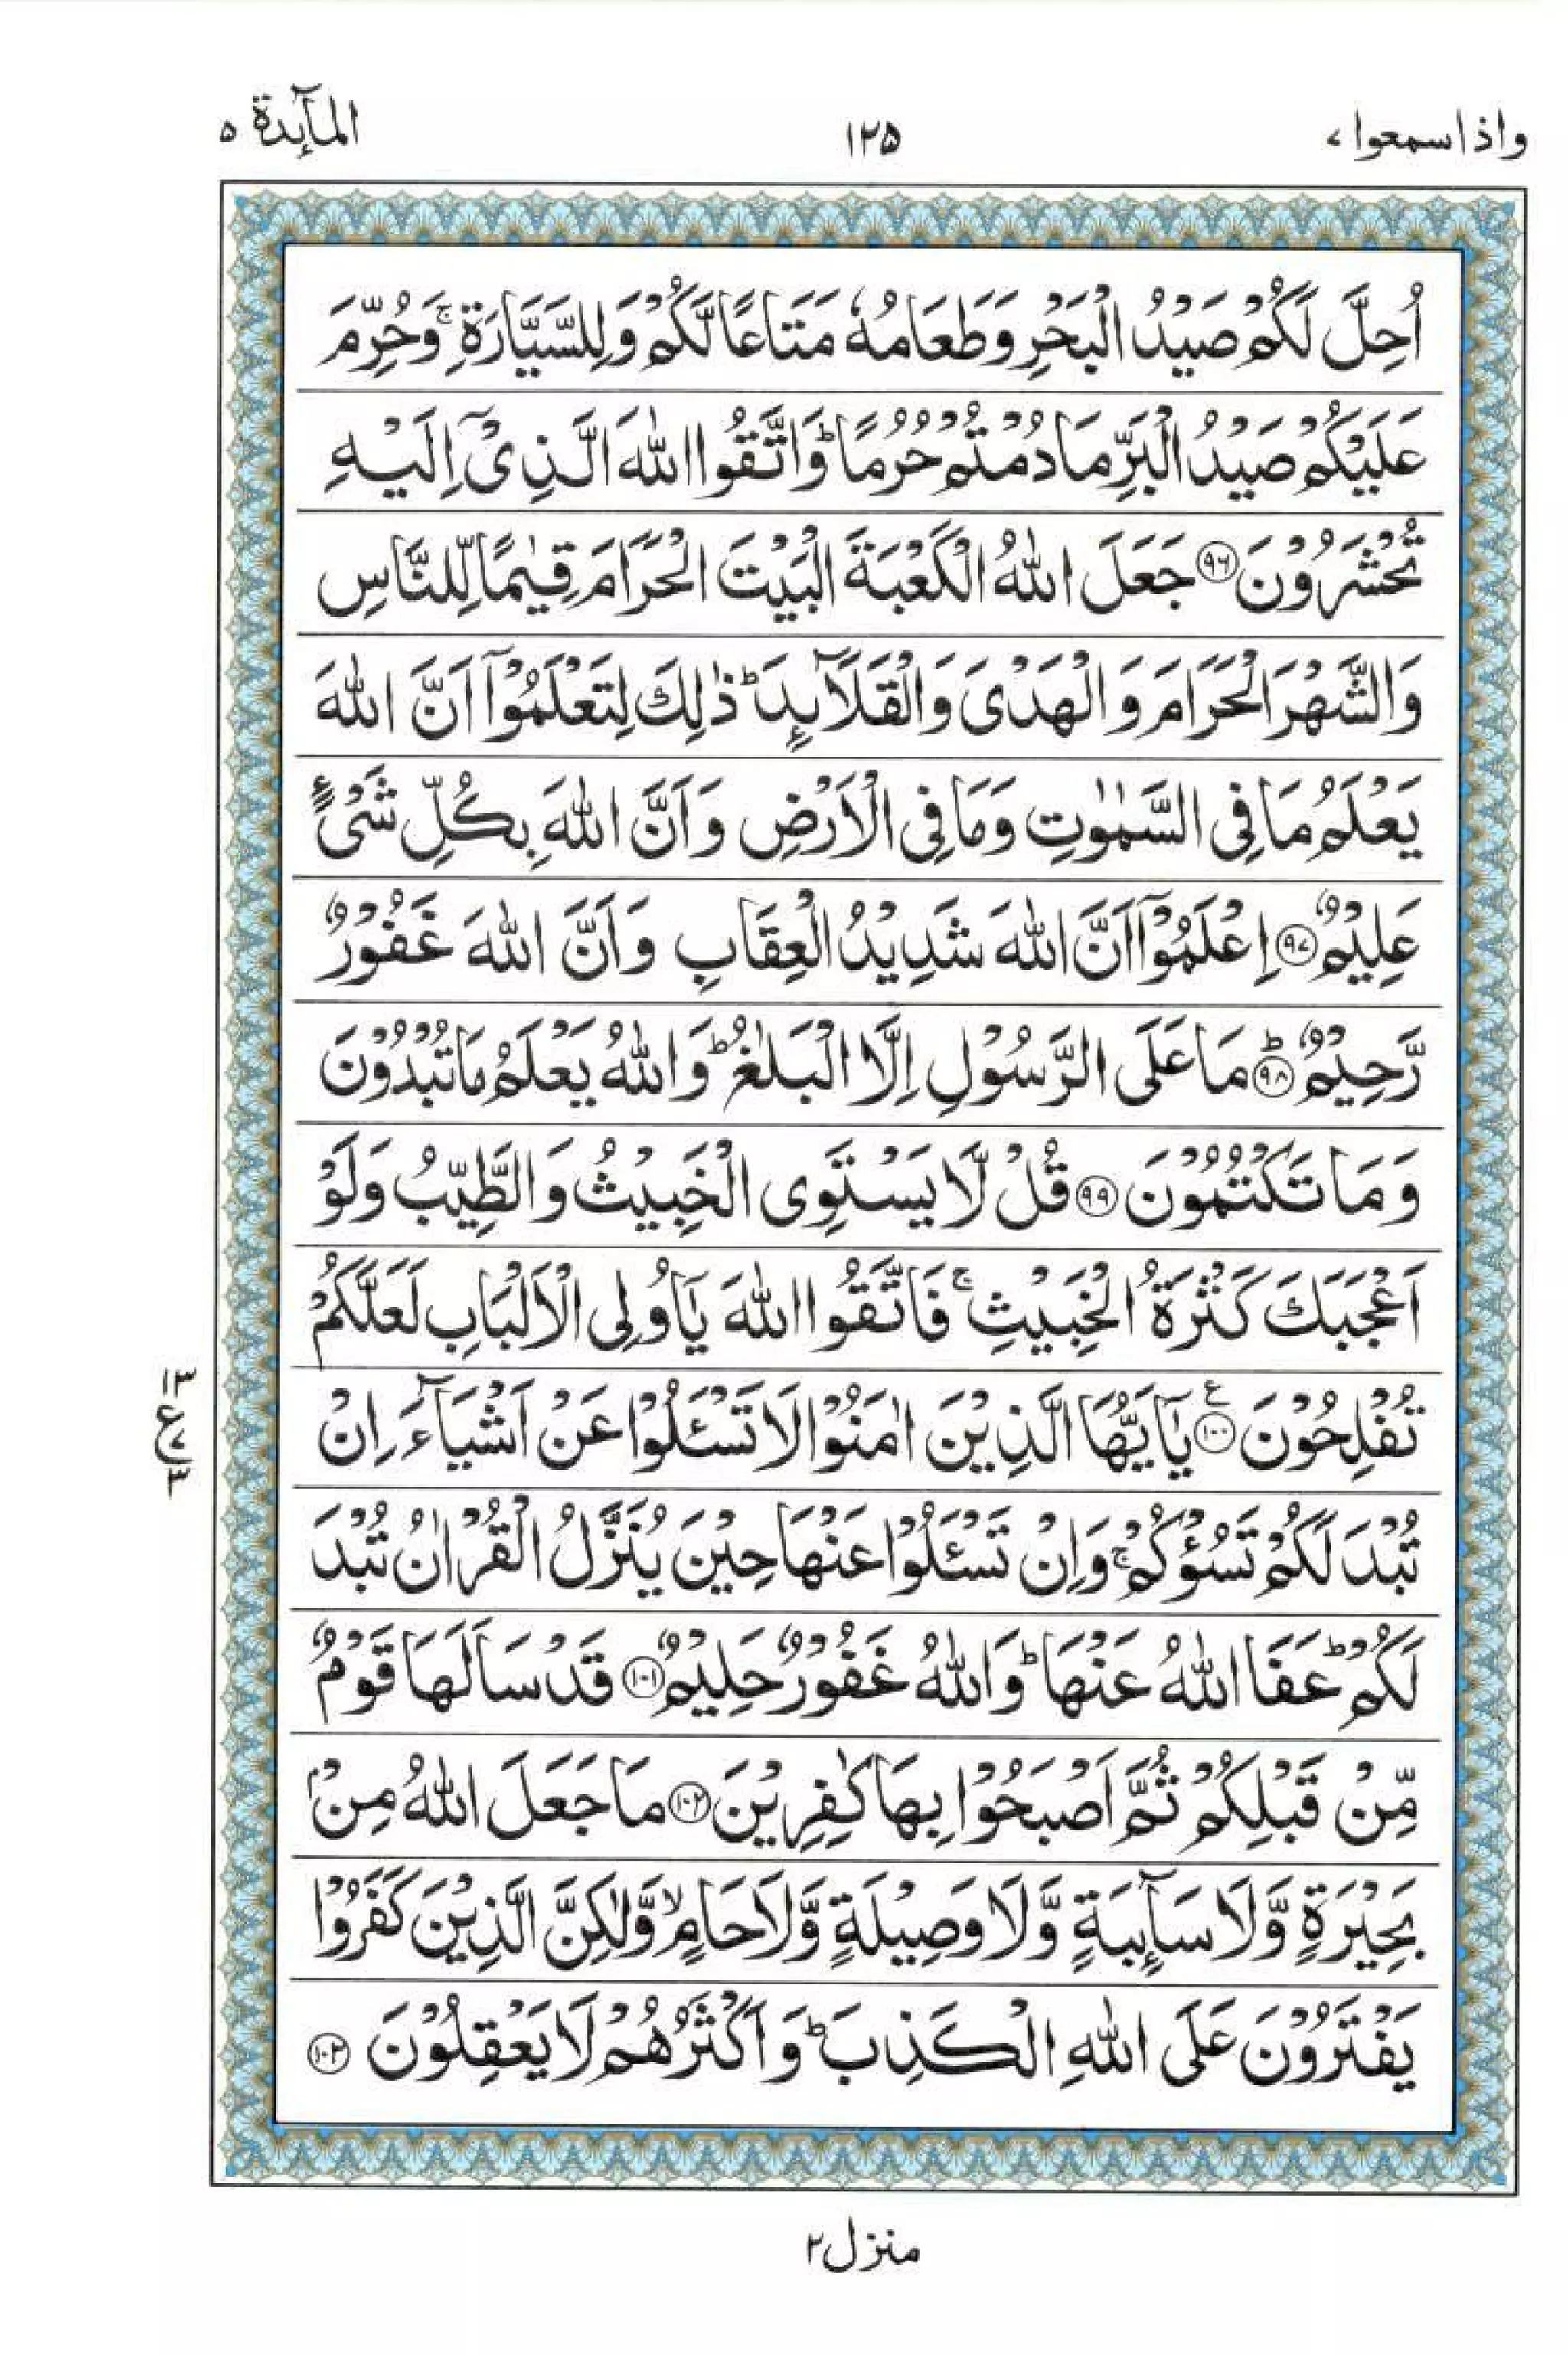 واذا سمعوا ۷
۱۲۵
المآئدۃ ۵
اُحِلَّ لَكُمْ صَيْدُ الْبَحْرِ وَطَعَامُهٗ مَتَاعًا لَّكُمْ وَلِلسَّيَّارَةِ ۚ وَحُرِّمَ
عَلَيْكُمْ صَيْدُ الْبَرِّ مَا دُمْتُمْ حُرُمًا ؕ وَاتَّقُوا اللّٰهَ الَّذِىْۤ اِلَيْهِ
تُحْشَرُوْنَ ۝۹۶ جَعَلَ اللّٰهُ الْكَعْبَةَ الْبَيْتَ الْحَرَامَ قِيٰمًا لِّلنَّاسِ
وَالشَّهْرَ الْحَرَامَ وَالْهَدْىَ وَالْقَلَآئِدَ ؕ ذٰلِكَ لِتَعْلَمُوْۤا اَنَّ اللّٰهَ
يَعْلَمُ مَا فِى السَّمٰوٰتِ وَمَا فِى الْاَرْضِ وَاَنَّ اللّٰهَ بِكُلِّ شَىْءٍ
عَلِيْمٌ ۝۹۷ اِعْلَمُوْۤا اَنَّ اللّٰهَ شَدِيْدُ الْعِقَابِ وَاَنَّ اللّٰهَ غَفُوْرٌ
رَّحِيْمٌ ؕ۝۹۸ مَا عَلَى الرَّسُوْلِ اِلَّا الْبَلٰغُ ؕ وَاللّٰهُ يَعْلَمُ مَا تُبْدُوْنَ
وَمَا تَكْتُمُوْنَ ۝۹۹ قُلْ لَّا يَسْتَوِى الْخَبِيْثُ وَالطَّيِّبُ وَلَوْ
اَعْجَبَكَ كَثْرَةُ الْخَبِيْثِ ۚ فَاتَّقُوا اللّٰهَ يٰۤاُولِى الْاَلْبَابِ لَعَلَّكُمْ
تُفْلِحُوْنَ ۝۱۰۰ ع يٰۤاَيُّهَا الَّذِيْنَ اٰمَنُوْا لَا تَسْئَلُوْا عَنْ اَشْيَآءَ اِنْ
تُبْدَ لَكُمْ تَسُؤْكُمْ ۚ وَاِنْ تَسْئَلُوْا عَنْهَا حِيْنَ يُنَزَّلُ الْقُرْاٰنُ تُبْدَ
لَكُمْ ؕ عَفَا اللّٰهُ عَنْهَا ؕ وَاللّٰهُ غَفُوْرٌ حَلِيْمٌ ۝۱۰۱ قَدْ سَاَلَهَا قَوْمٌ
مِّنْ قَبْلِكُمْ ثُمَّ اَصْبَحُوْا بِهَا كٰفِرِيْنَ ۝۱۰۲ مَا جَعَلَ اللّٰهُ مِنْۢ
بَحِيْرَةٍ وَّلَا سَآئِبَةٍ وَّلَا وَصِيْلَةٍ وَّلَا حَامٍ ۙ وَّلٰكِنَّ الَّذِيْنَ كَفَرُوْا
يَفْتَرُوْنَ عَلَى اللّٰهِ الْكَذِبَ ؕ وَاَكْثَرُهُمْ لَا يَعْقِلُوْنَ ۝۱۰۳
۳ ع ۷ ۳
منزل ۲